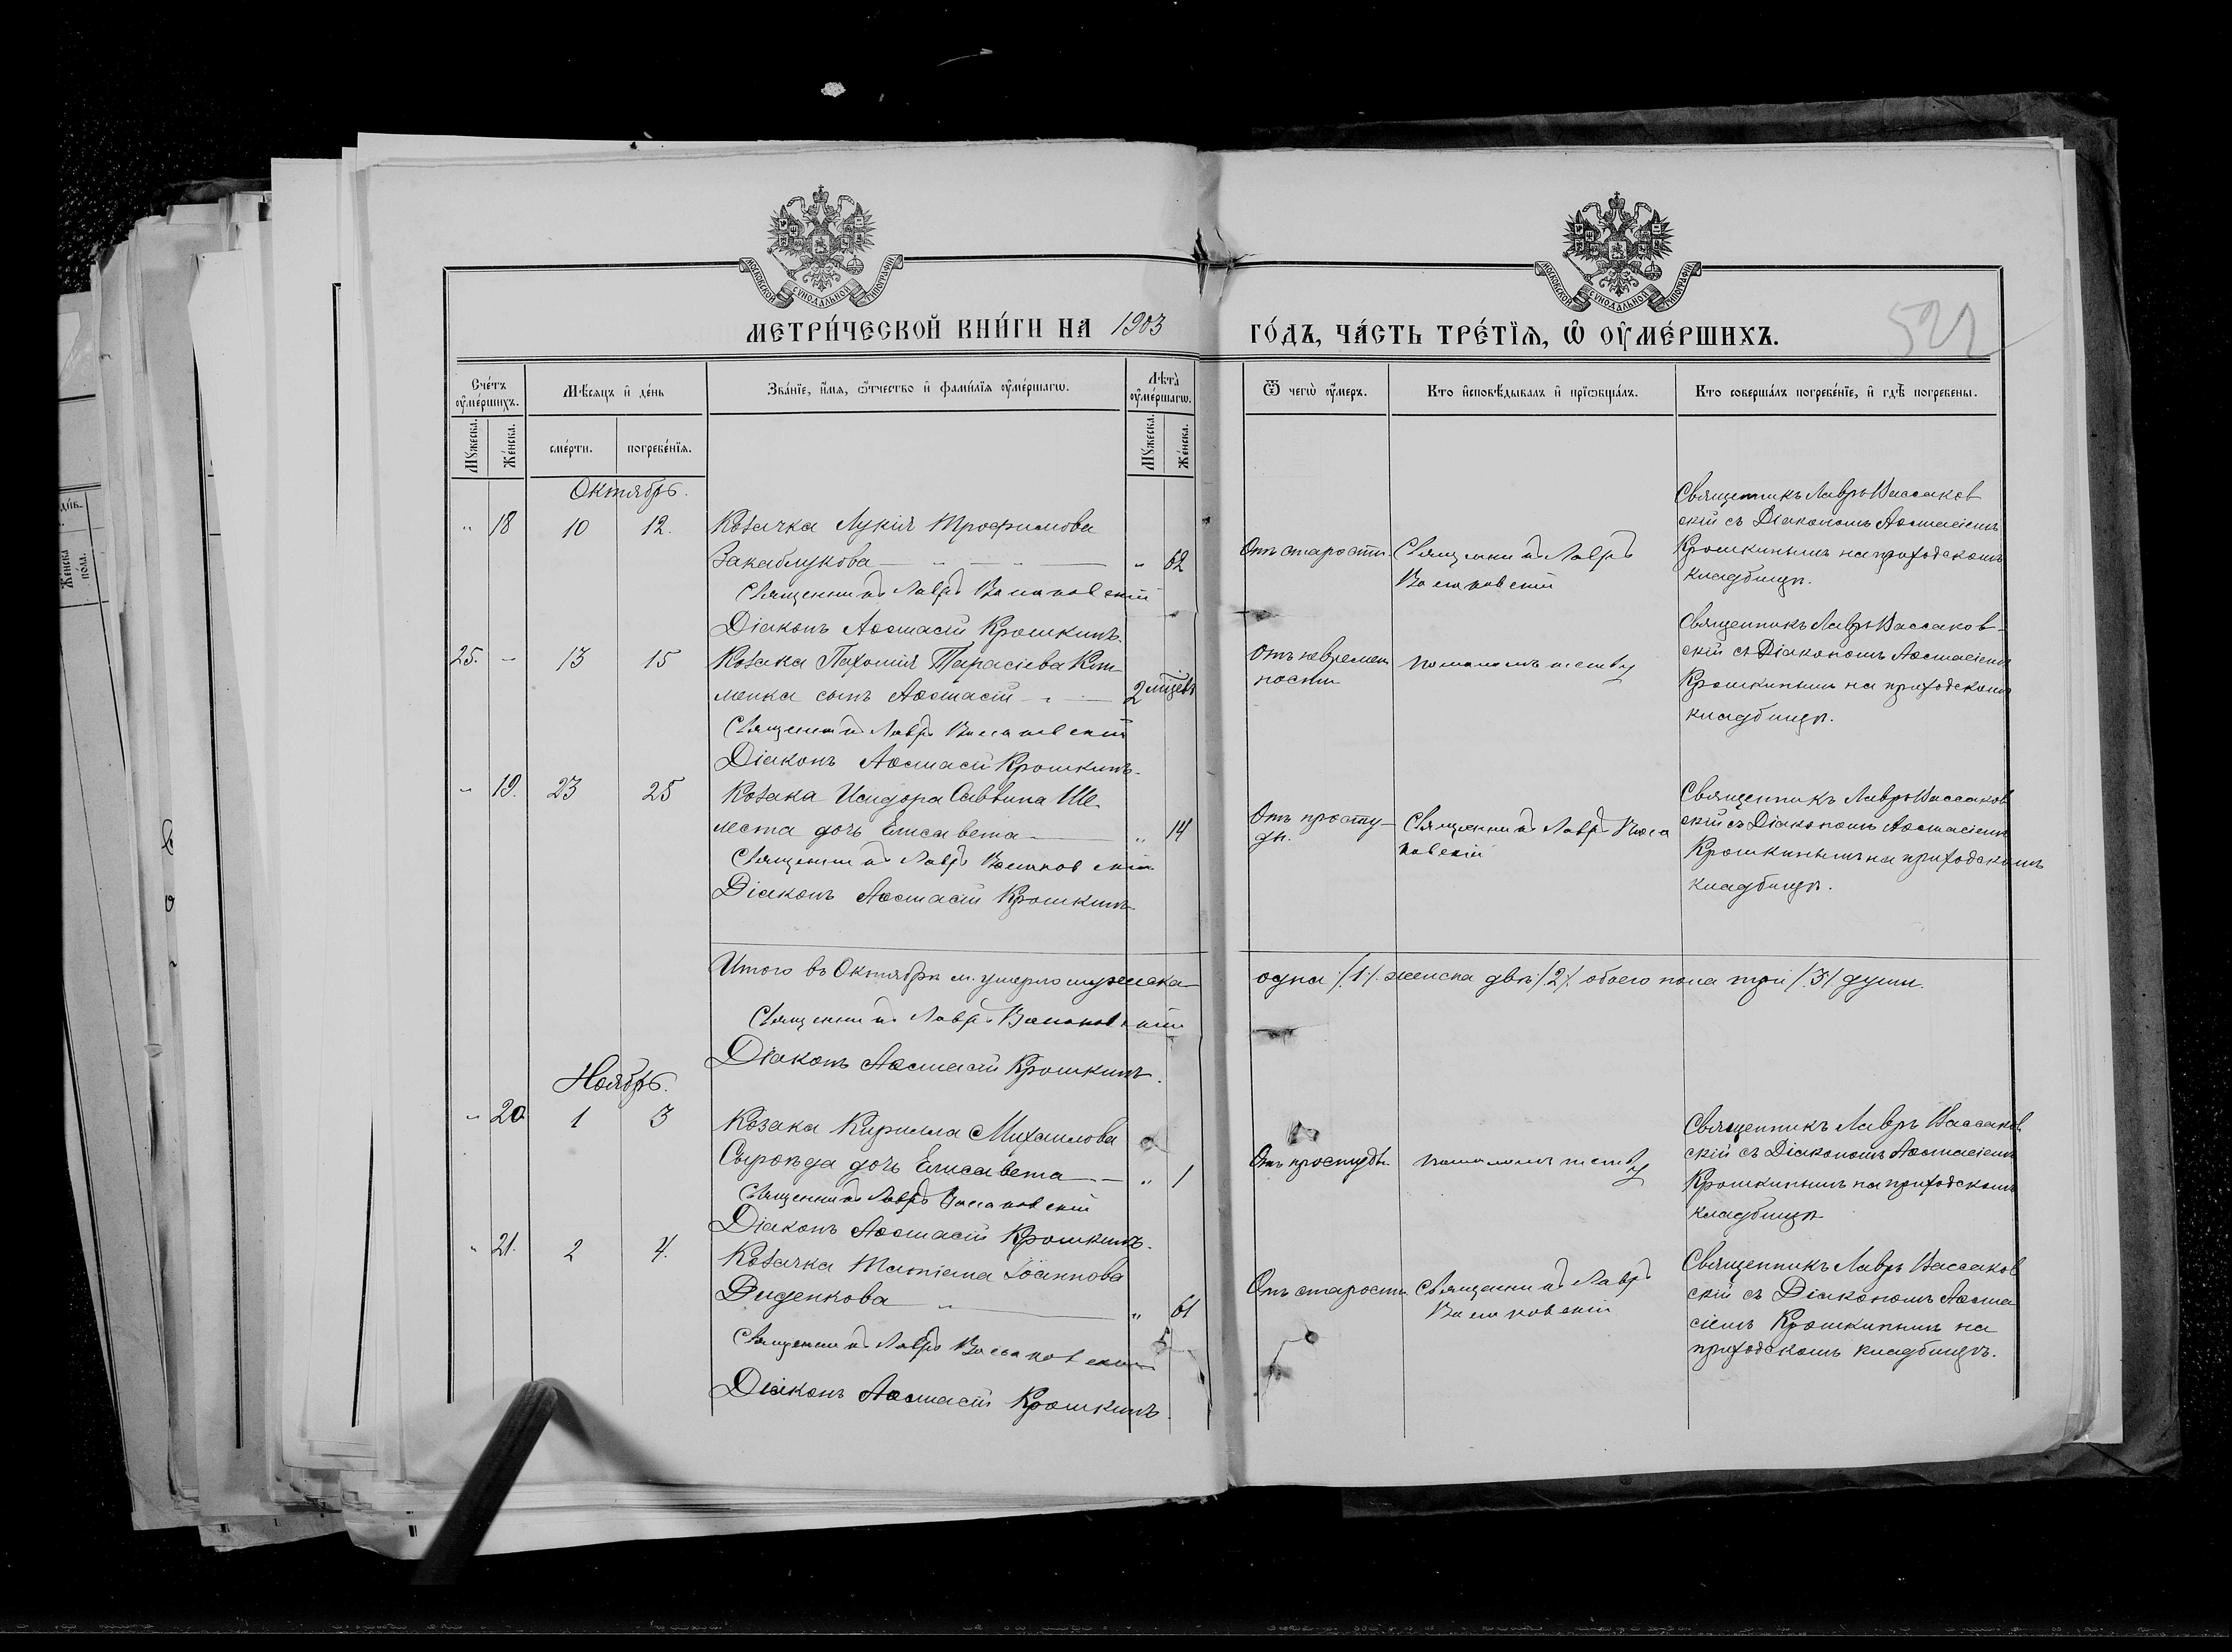 МОСКОВСКОЙ СУНОДАЛЬНОЙ ТИПОГРАФІИ
МОСКОВСКОЙ СУНОДАЛЬНОЙ ТИПОГРАФІИ
МЕТРИ́ЧЕСКОЙ КНИ́ГИ НА 1903
ГО́ДЪ, ЧА́СТЬ ТРЕ́ТІѦ, Ѡ ОУМЕ́РШИХЪ.
522
Сче́тъ оумершихъ.
Мѣсяцъ и де́нь
Зва́нїе, и́мя, ѻтчество и фами́лїя оумершагѡ.
Лѣта̀ оумершагѡ.
Ѿ чегѡ̀ оумеръ.
Кто исповѣдывалъ и прїѡбща́лъ.
Кто соверша́лъ погребе́нїе, и гдѣ погребены.
Мꙋжеска.
Же́нска.
сме́рти.
погребе́нїя.
Мꙋжеска.
Же́нска.
Октябрь.
" 18 10 12. Козачка Лукія Трофимова
Закаблукова " 62
Священникъ Лавръ Вассаковскій
Діаконъ Аѳанасій Крошкинъ.
Отъ старости.
Священникъ Лавръ
Вассаковскій
Священникъ Лавръ Вассаков
скій съ Діакономъ Аѳанасіемъ
Крошкинымъ на приходскомъ
кладбищѣ.
25. - 13 15 Козака Пахомія Тарасіева Кли-
менка сынъ Аѳанасій 2 мѣсец.
Священникъ Лавръ Вассаковскій
Діаконъ Аѳанасій Крошкинъ.
Отъ невремен
ности
по малолѣтству
Священникъ Лавръ Вассаков-
скій съ Діакономъ Аѳанасіемъ
Крошкинымъ на приходскомъ
кладбищѣ.
" 19. 23 25 Козака Исидора Саввина Ше-
леста дочь Елисавета " 14
Священникъ Лавръ Вассаковскій
Діаконъ Аѳанасій Крошкинъ
Отъ просту-
ды.
Священникъ Лавръ Васса
ковскій
Священникъ Лавръ Вассаков
скій съ Діакономъ Аѳанасіемъ
Крошкинымъ на приходскомъ
кладбищѣ.
Итого въ Октябрѣ м. умерло мужеска
одна /1/. женска двѣ /2/. обоего пола три /3/ души.
Священникъ Лавръ Вассаковскій
Діаконъ Аѳанасій Крошкинъ.
Ноябрь.
" 20 1 3 Козака Кирилла Михаилова
Сыроѣда дочь Елисавета " 1
Священникъ Лавръ Вассаковскій
Діаконъ Аѳанасій Крошкинъ.
Отъ простуды.
по малолѣтству
Священникъ Лавръ Вассаков
скій съ Діакономъ Аѳанасіемъ
Крошкинымъ на приходскомъ
кладбищѣ
" 21. 2 4. Козачка Татіана Іоаннова
Диденкова " 61
Священникъ Лавръ Вассаковскій
Діаконъ Аѳанасій Крошкинъ.
Отъ старости
Священникъ Лавръ
Вассаковскій
Священникъ Лавръ Вассаков
скій съ Діакономъ Аѳана
сіемъ Крошкинымъ на
приходскомъ кладбищѣ.